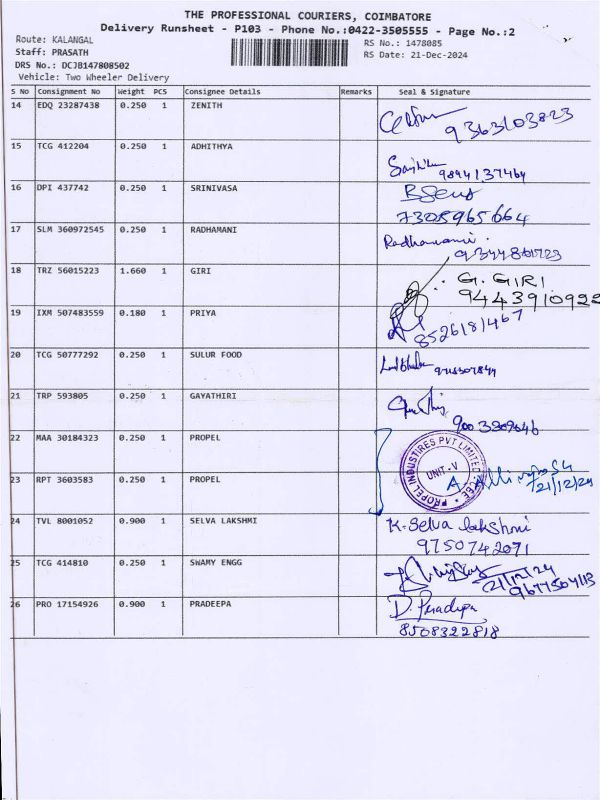 THE PROFESSIONAL COURIERS, COIMBATORE
Delivery Runsheet - P103 - Phone No.:0422-3505555 - Page No.:2
Route: KALANGAL
RS No.: 1478085
Staff: PRASATH
RS Date: 21-Dec-2024
DRS No.: DCJB147808502
Vehicle: Two Wheeler Delivery
S No Consignment No Weight PCS Consignee Details Remarks Seal & Signature
14 EDQ 23287438 0.250 1 ZENITH
9363103823
15 TCG 412204 0.250 1 ADHITHYA
9894137464
16 DPI 437742 0.250 1 SRINIVASA
7305965664
17 SLM 360972545 0.250 1 RADHAMANI Radhamani
18 TRZ 56015223 1.660 1 GIRI G. GIRI
9443910922
19 IXM 507483559 0.180 1 PRIYA
8526181467
20 TCG 50777292 0.250 1 SULUR FOOD
21 TRP 593805 0.250 1 GAYATHIRI
22 MAA 30184323 0.250 1 PROPEL
PROPEL INDUSTRIES PVT LIMITED, CBE
UNIT-V
23 RPT 3603583 0.250 1 PROPEL
21/12/24
24 TVL 8001052 0.900 1 SELVA LAKSHMI K. Selva lakshmi
9750742071
25 TCG 414810 0.250 1 SWAMY ENGG
21/12/24
26 PRO 17154926 0.900 1 PRADEEPA D. Pradeepa
8508322818